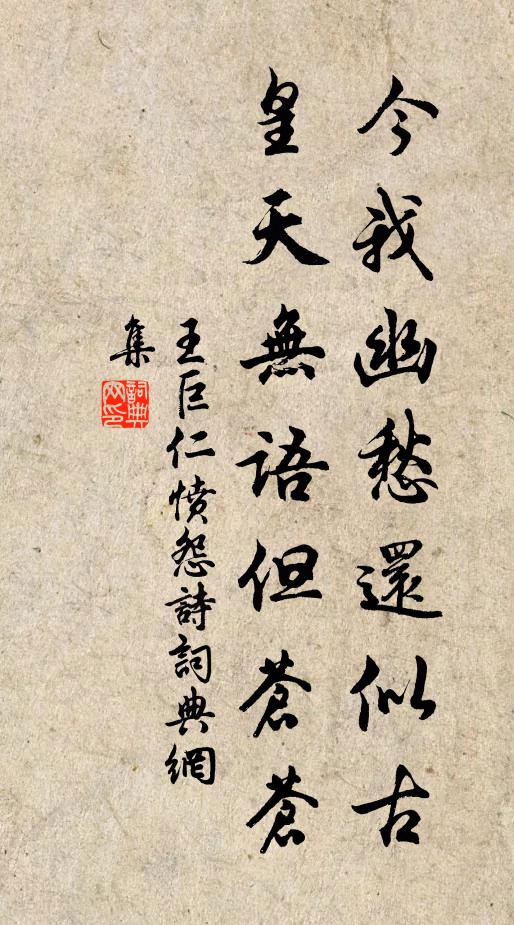 今我幽愁還似古
皇天無語但蒼蒼
王巨仁憤怨詩詞典網
集
詞典
網印